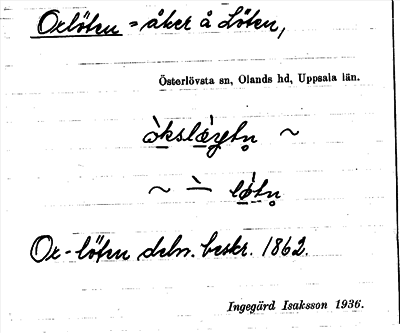 Oxlöten = åker å Löten,
Österlövsta sn, Olands hd, Uppsala län.
~
~ –
Ox-löten deln. beskr. 1862.
Ingegärd Isaksson 1936.